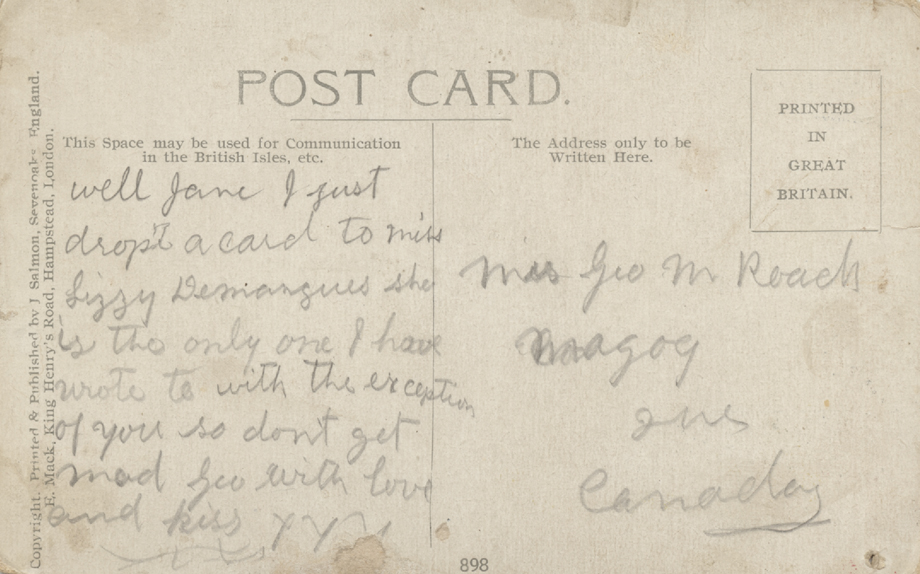 POST CARD.
This Space may be used for Communication
in the British Isles, etc.
The Address only to be
Written Here.
PRINTED
IN
GREAT
BRITAIN.
Copyright. Printed & Published by J Salmon, Sevenoaks England.
E. Mack, King Henry's Road, Hampstead, London.
well Jane I just
dropt a card to miss
Lizzy she
is the only one I have
wrote to with the exception
of you so dont get
mad Geo with love
and kiss
Geo M Roach
Magog
que
Canada
898